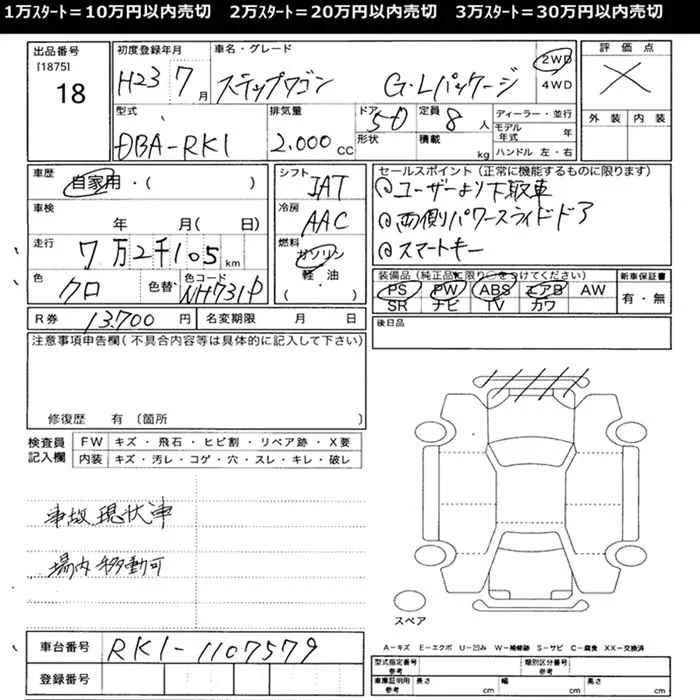 1万スタート=10万円以内売切 2万スタート=20万円以内売切 3万スタート=30万円以内売切
出品番号 [1875] 18
初度登録年月 H23 7月
車名・グレード ステップワゴン G・Lパッケージ
2WD 4WD
評価点 X
外装 内装
型式 DBA-RK1
排気量 2.000 CC
ドア 形状 5D
定員 8人
積載 kg
ディーラー・並行
モデル年式 年
ハンドル 左・右
車歴 自家用・( )
車検 年 月( 日)
走行 7万2千105 km
色 クロ 色替 色コード NH731P
シフト IAT
冷房 AAC
燃料 ガソリン・軽油・( )
セールスポイント(正常に機能するものに限ります)
@ユーザーより下取車
@両側パワースライドドア
@スマートキー
装備品(純正品に限り○をつけてください)
PS PW ABS エアB AW
SR ナビ TV カワ
新車保証書 有・無
R券 13.700円 名変期限 月 日
後日品
注意事項申告欄(不具合内容等は具体的に記入して下さい)
修復歴 有〔箇所 〕
検査員記入欄
FW キズ・飛石・ヒビ割・リペア跡・X要
内装 キズ・汚レ・コゲ・穴・スレ・キレ・破レ
事故現状車
場内移動可
スペア
A-キズ E-エクボ U-凹み W-補修跡 S-サビ C-腐食 XX-交換済
車台番号 RK1-1107579
登録番号
型式指定番号 参考 類別区分番号 参考
車庫証明用 参考 長さ cm 幅 cm 高さ cm